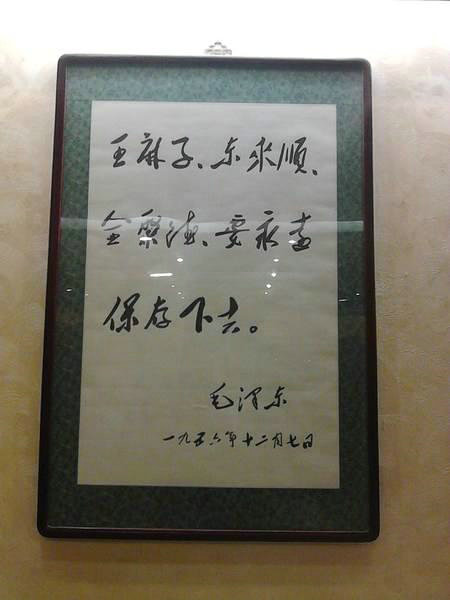 王麻子、东來順、
全聚德、要永遠
保存下去。
毛澤东
一九五六年十二月七日